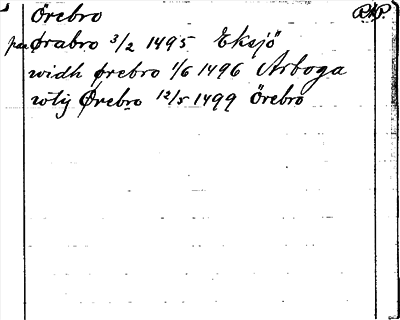 Örebro P.N.P.
paa ørabro 3/2 1495 Eksjö
widh ørebro 1/6 1496 Arboga
wtij Ørebro 12/5 1499 Örebro